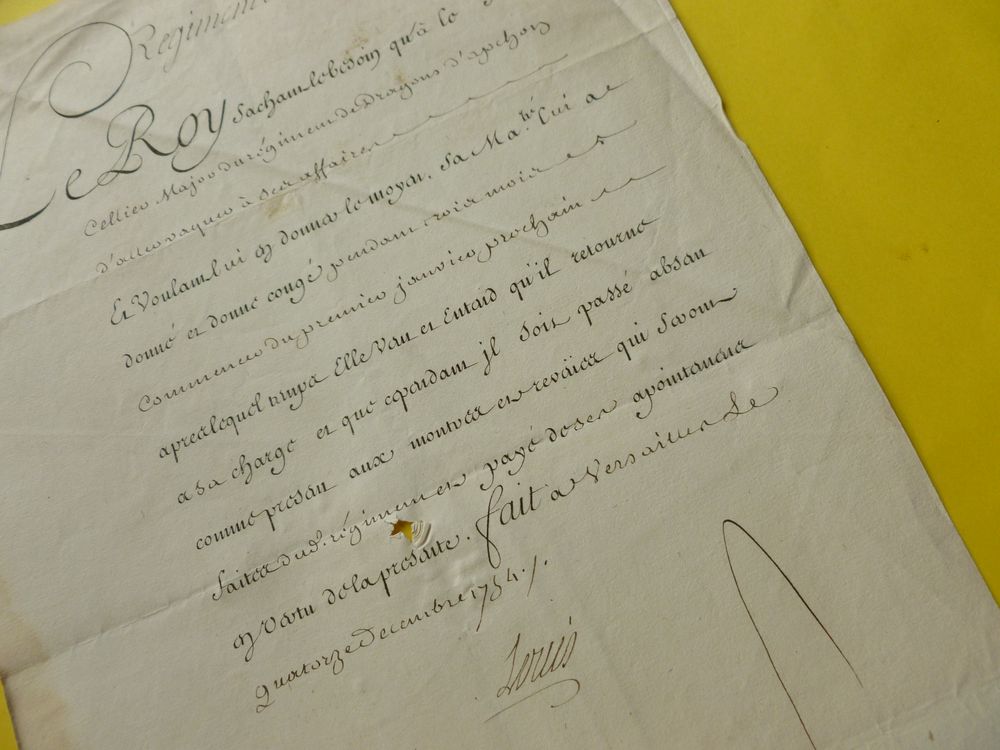 Regiment
Le ROY sachant le besoin qu'a le S
Cellier Major du régiment de Dragons d'apchon
d'aller vaquer à ses affaires
Et Voulant lui en donner le moyen. Sa Ma.té lui a
donné et donne congé pendant trois mois et
commencer du premier janvier prochain
apres lequel temps Elle Veut et Entend qu'il retourne
a sa charge et que cependant jl soit passé absent
comme present aux montres et reveües qui seront
faites dud. régiment et payé de ses apointemens
en vertu de la presente. fait a Versailles le
quatorze Decembre 1754./.
Louis